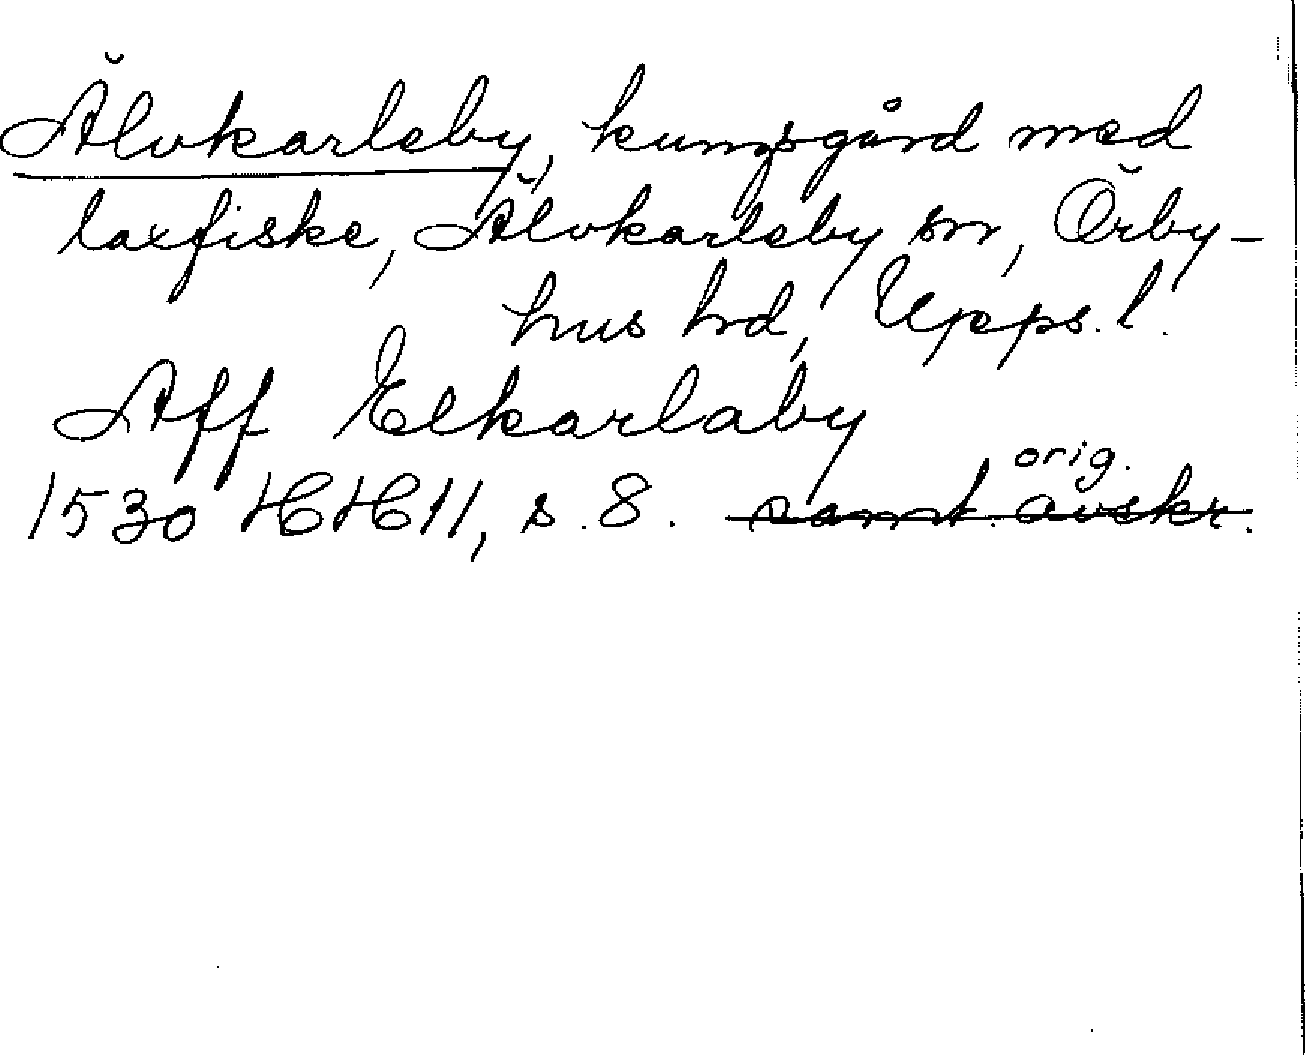 Älvkarleby, kungsgård med
laxfiske, Älvkarleby sn, Örby-
hus hd, Upps. l.
Aff Elkarlaby
orig.
1530 HH 11, s. 8. samt. avskr.